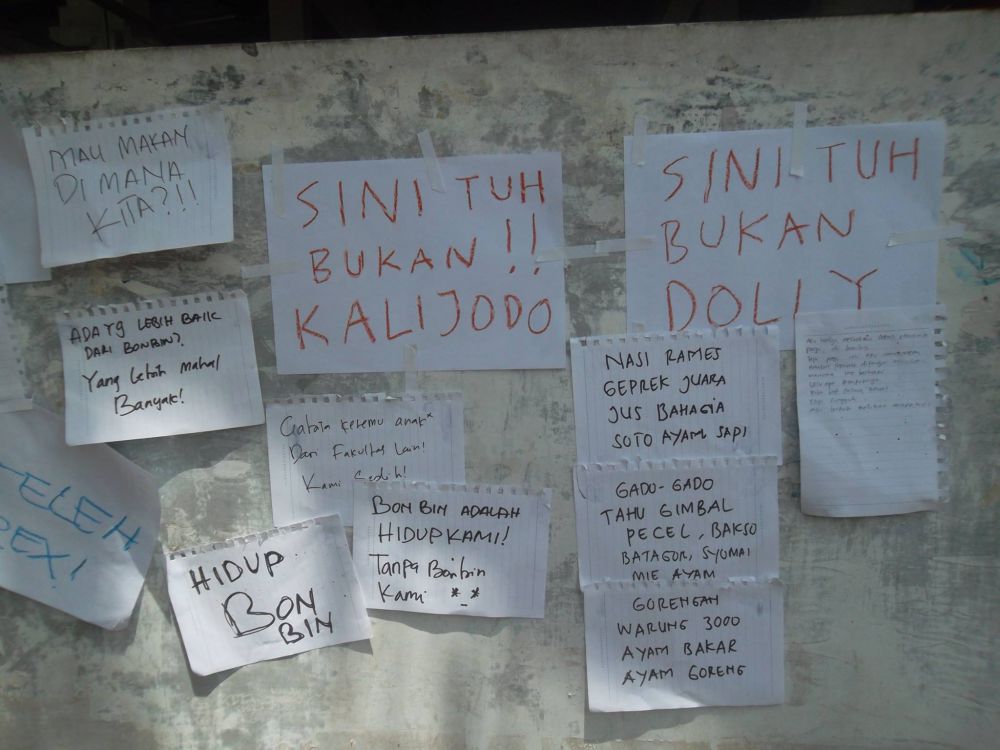 MAU MAKAN
DI MANA
KITA?!!
SINI TUH
BUKAN !!
KALIJODO
SINI TUH
BUKAN
DOLLY
ADA YG LEBIH BAIK
DARI BONBIN?
Yang lebih Mahal
Banyak!
Gabisa ketemu anak*
Dari Fakultas Lain!
Kami Sedih!
BON BIN ADALAH
HIDUP KAMI!
Tanpa Bonbin
Kami *_*
HIDUP
BON
BIN
ELEH
REX!
NASI RAMES
GEPREK JUARA
JUS BAHAGIA
SOTO AYAM SAPI
GADO-GADO
TAHU GIMBAL
PECEL, BAKSO
BATAGOR, SYOMAI
MIE AYAM
GORENGAN
WARUNG 3000
AYAM BAKAR
AYAM GORENG